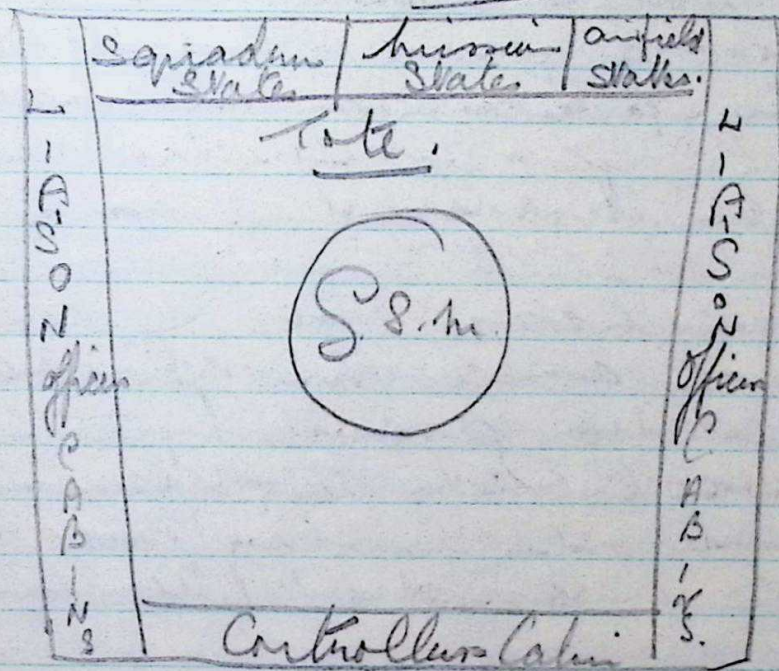 Squadron States | Mission States | Airfield States.
Tote.
G.S.M.
LIASON Officers CABINS
LIASON Officers CABINS
Controllers Cabin